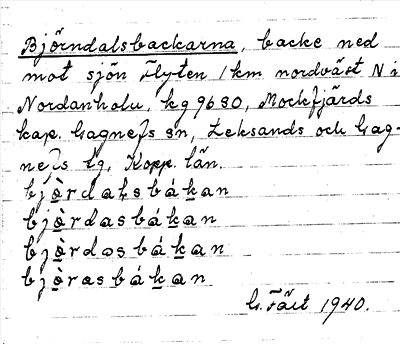 Björndalsbackarna, backe ned
mot sjön Flyten 1 km nordväst N i
Nordanholn, kg 9680, Mockfjärds
kap. Gagnefs sn, Leksands och Gag-
nefs tg, Kopp. län.
bjò̱rdalsbáḵan
bjò̱rdasbáḵan
bjò̱rdəsbáḵan
bjò̱rasbáḵan
G. 1940.